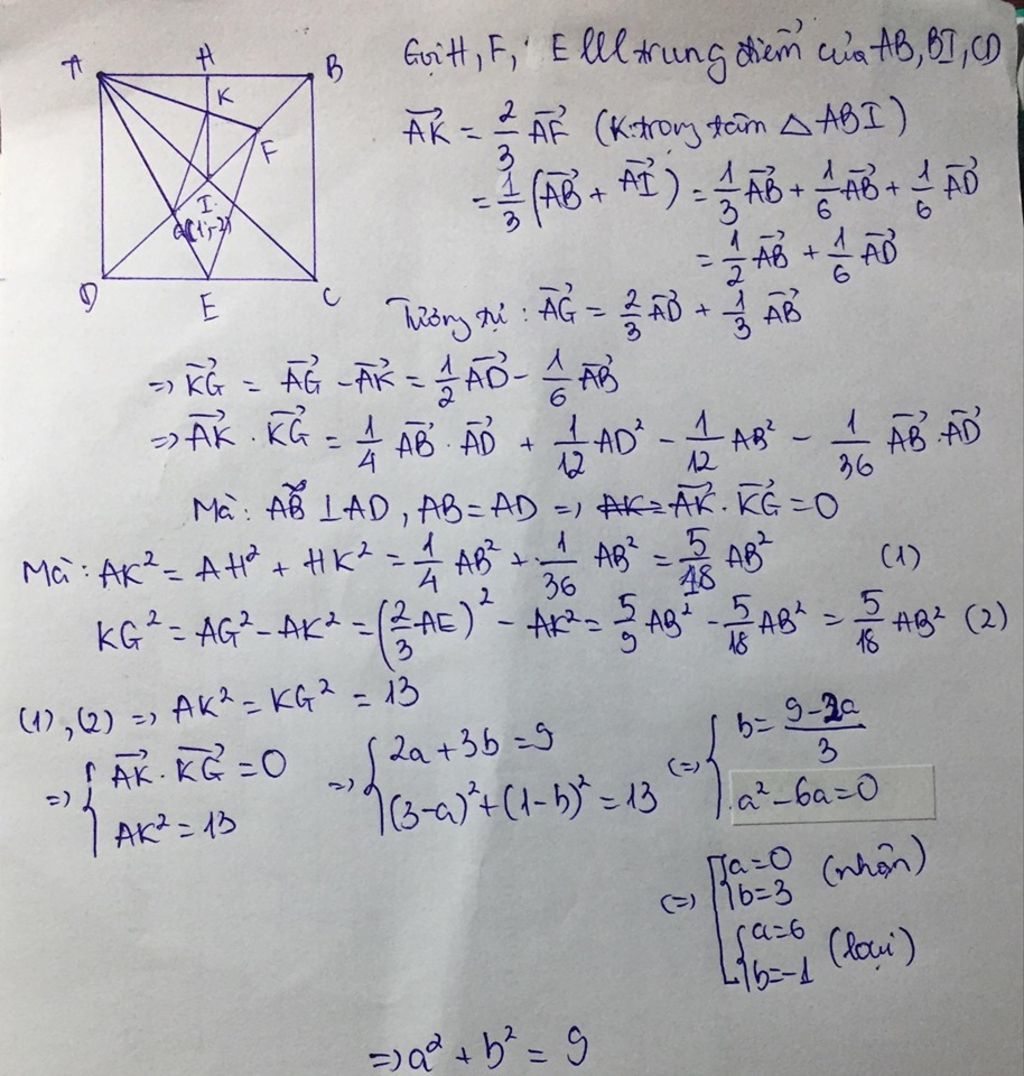 A H B
K
F
I
G(1;-2)
D E C
Gọi H, F, E lll trung điểm của AB, BI, CD
\vec{AK} = \frac{2}{3} \vec{AF} (K: trọng tâm △ ABI)
= \frac{1}{3} (\vec{AB} + \vec{AI}) = \frac{1}{3} \vec{AB} + \frac{1}{6} \vec{AB} + \frac{1}{6} \vec{AD}
= \frac{1}{2} \vec{AB} + \frac{1}{6} \vec{AD}
Tương tự: \vec{AG} = \frac{2}{3} \vec{AD} + \frac{1}{3} \vec{AB}
=> \vec{KG} = \vec{AG} - \vec{AK} = \frac{1}{2} \vec{AD} - \frac{1}{6} \vec{AB}
=> \vec{AK} . \vec{KG} = \frac{1}{4} \vec{AB} . \vec{AD} + \frac{1}{12} AD² - \frac{1}{12} AB² - \frac{1}{36} \vec{AB} . \vec{AD}
Mà: AB ⊥ AD, AB = AD => \vec{AK} . \vec{KG} = 0
Mà: AK² = AH² + HK² = \frac{1}{4} AB² + \frac{1}{36} AB² = \frac{5}{18} AB² (1)
KG² = AG² - AK² = (\frac{2}{3} AE)² - AK² = \frac{5}{9} AB² - \frac{5}{18} AB² = \frac{5}{18} AB² (2)
(1), (2) => AK² = KG² = 13
=> { \vec{AK} . \vec{KG} = 0 => { 2a + 3b = 9 (=) { b = \frac{9-2a}{3}
AK² = 13 (3-a)² + (1-b)² = 13 a² - 6a = 0
(=) [ { a = 0 (nhận)
b = 3
{ a = 6 (loại)
b = -1
=> a² + b² = 9